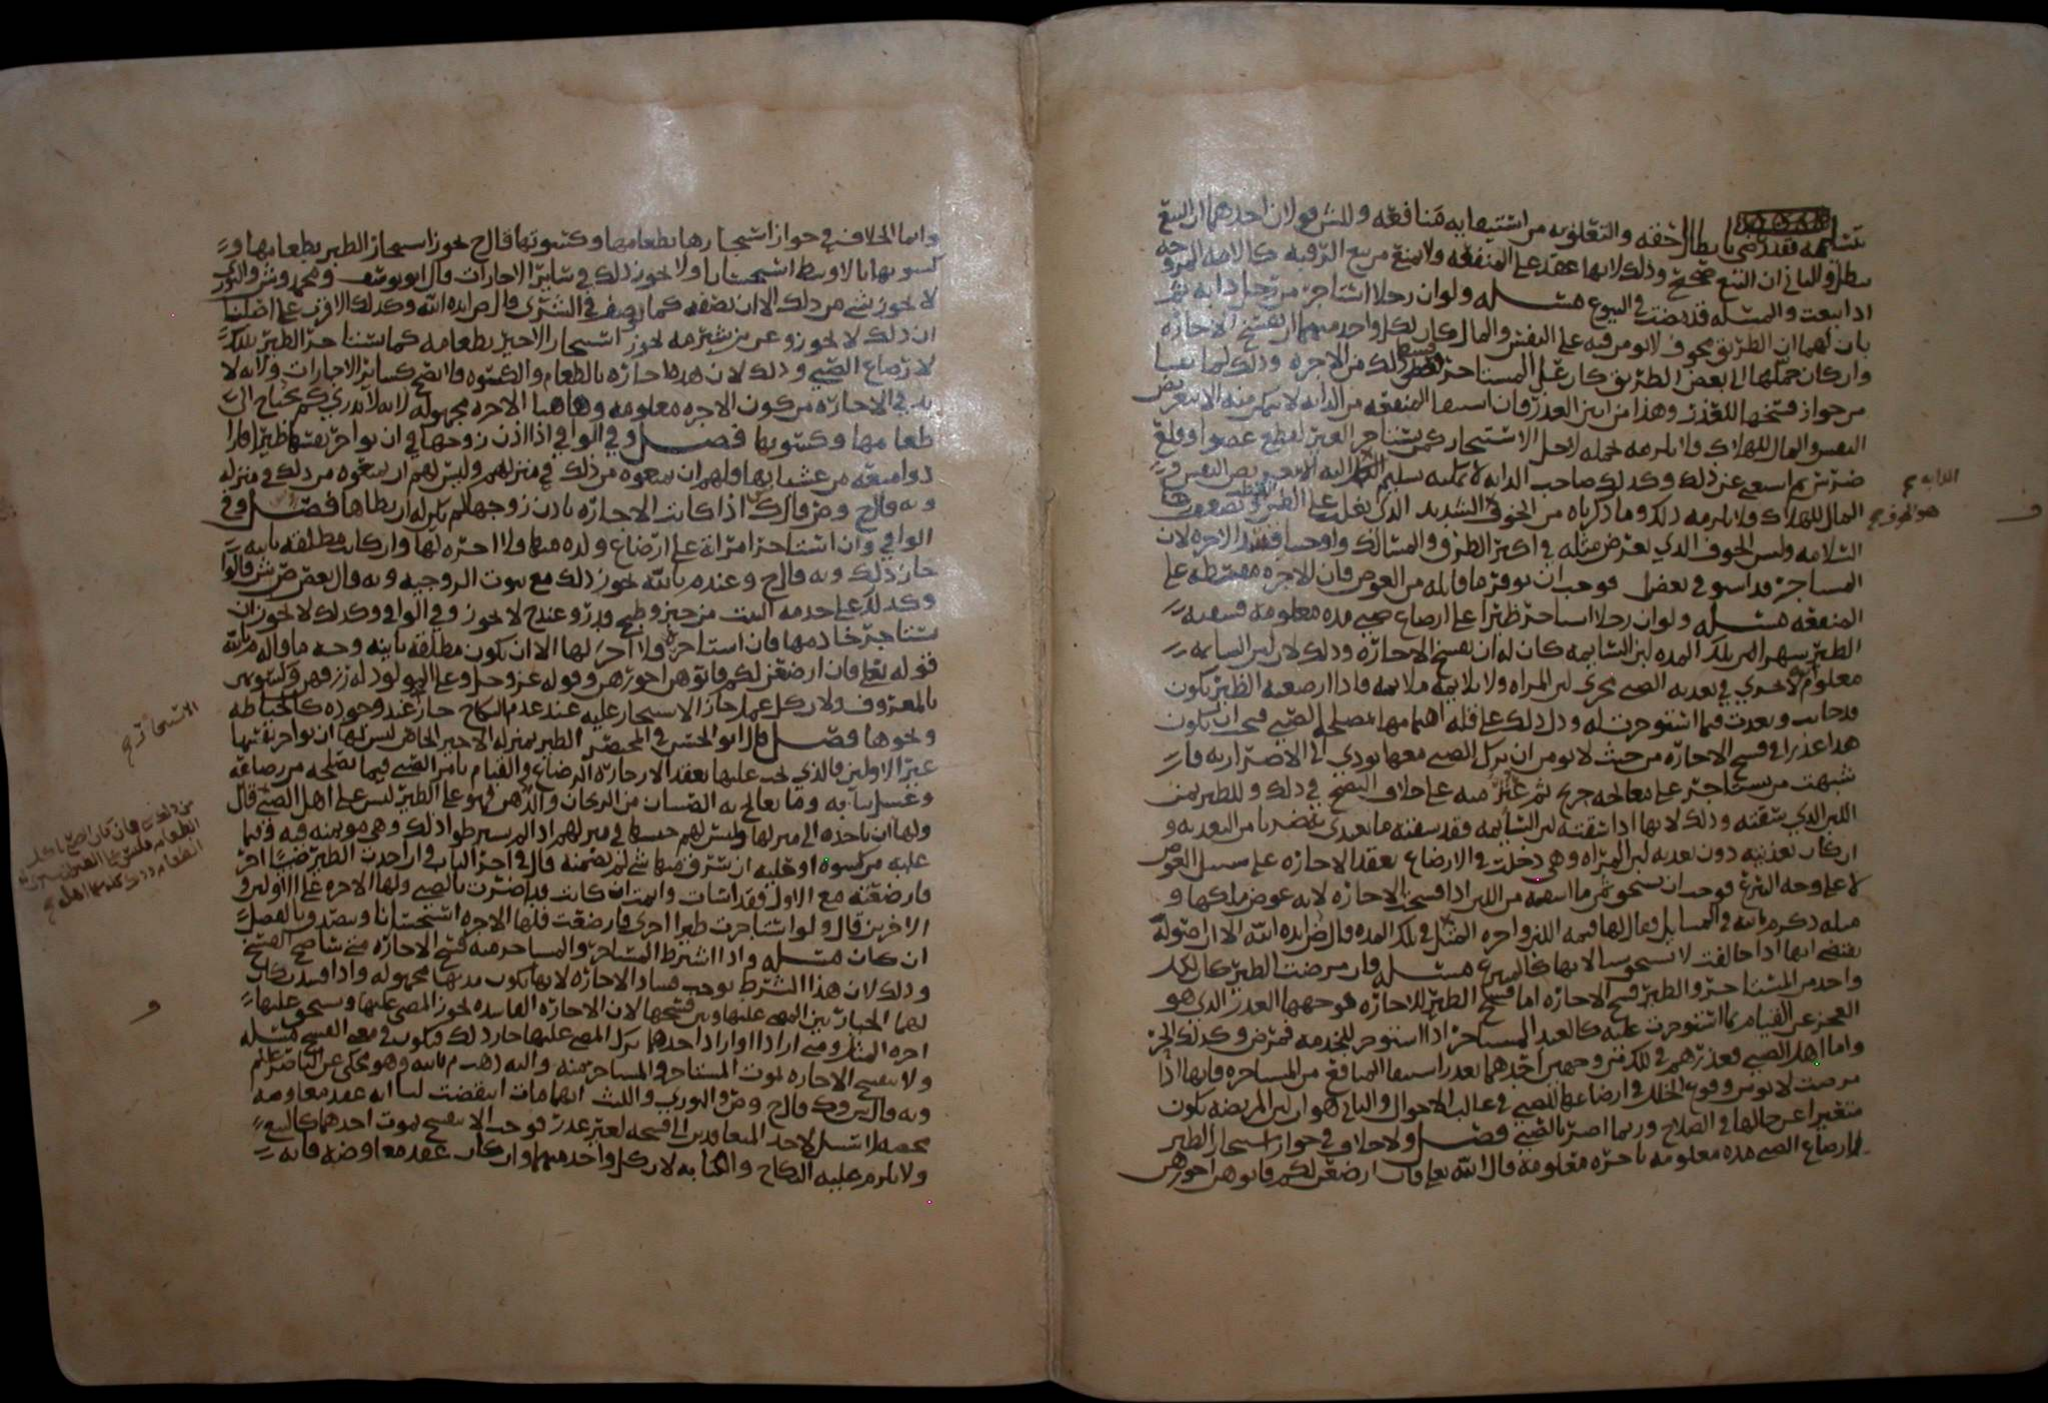 تسلمه فقد رضي بابطال حقه والتعلق به من استيفائه منافعه وللمشتري لان احدهما ان البيع
يبطل والثاني ان البيع صحيح وذلك لانها عقد على المنفعه ولا يمنع من بيع الرقبه كالامه المزوجه
اذا بيعت والمسله قد مضت في البيوع مسله ولو ان رجلا استاجر من رجل دابه ثم
بان لهما ان الطريق مخوف لا يومن فيه على النفس والمال كان لكل واحد منهما ان يفسخ الاجازه
وان كان حملها الى بعض الطريق كان على المستاجر قسط ذلك من الاجره وذلك لما بينا
من جواز فسخها للعذر وهذا من ابين العذر فان استيفا المنفعه من الدابه لا يمكن منه الا بتعريض
النفس والمال للهلاك ولا يلزمه تحمله لاجل الاستيجار كمن يستاجر الغير لقطع عضو او قلع
ضرس ثم استغنى عن ذلك وكذلك صاحب الدابه لا يمكنه تسليم اليه الا بتعريض النفس و
المال للهلاك ولا يلزمه ذلك وما ذكرناه من الخوف الشديد الذي يغلب على الظن
السلامه وليس الخوف الذي يعرض مثله في اكثر الطرق والمسالك واوجبنا قسط الاجره لان
المستاجر قد استوفى بعض فوجب ان يوفر ما قابله من العوض فان الاجره مقسطه على
المنفعه مسله ولو ان رجلا استاجر ظئرا على ارضاع صبي مده معلومه فسقته
الظئر شهرا من تلك المده لبن السايمه كان له ان يفسخ الاجازه وذلك لان لبن السايمه
معلوم انه لا يجري في تغذيه الصبي مجرى لبن المراه ولا يلايمه ملايمه فاذا ارضعته الظئر يكون
قد خانت وتعدت فيما استوجرت له ودل ذلك على قله اهتمامها بمصلحه الصبي فيجب ان يكون
هذا عذرا في فسخ الاجازه من حيث لا يومن ان ترك الصبي معها يودي الى الاضرار به فان
شبهت من يستاجر على معالجه جريح ثم عثر منه على خلاف النصح في ذلك وللظئر ثمن
اللبن الذي سقته وذلك لانها اذا سقته لبن السايمه فقد سقته ما يغذي بضربا من التغذيه و
ان كان تغذيته دون تغذيه لبن المراه وهي دخلت في الارضاع بعقد الاجازه على سبيل العوض
لا على وجه التبرع فوجب ان تستحق ثمن ما اسقته من اللبن اذا فسخت الاجازه لانه عوض ملكها و
مثله ذكره بالله في المسايل فقال لها قيمه اللبن واجره المثل في تلك المده قال ض ايده الله الا ان اصوله
يقتضي انها اذا خالفت لا تستحق شيا لانها كالمتبرع مسله وان مرضت الظئر كان لكل
واحد من المستاجر والظئر فسخ الاجازه اما فسخ الظئر للاجازه فوجهها العذر الذي هو
العجز عن القيام بما استوجرت عليه كالعبد المستاجر اذا استوجر للخدمه فمرض وكذلك الحر
واما اهل الصبي فعذرهم في ذلك من وجهين احدهما تعذر استيفا المنافع من المستاجره فانها اذا
مرضت لا يومن وقوع الخلل في ارضاعها للصبي في غالب الاحوال والثاني هو ان لبن المريضه يكون
متغيرا عن حالها في الصلاح وربما اضر بالصبي فصل ولا خلاف في جواز استيجار الظئر
لارضاع الصبي مده معلومه باجره معلومه قال الله تعالى فان ارضعن لكم فاتوهن اجورهن
الدابه
هو الخوف
وانما الخلاف في جواز استيجارها بطعامها وكسوتها قال ح يجوز استيجار الظئر بطعامها و
كسوتها بالاوسط استحسانا ولا يجوز ذلك في سائر الاجارات وقال ابو يوسف ومحمد وش والثوري
لا يجوز شي من ذلك الا ان يصفه كما يوصف في الشرى قال ض ايده الله وكذلك الاقرب على اصلنا
ان ذلك لا يجوز وعن ابن شبرمه يجوز استيجار الاجير بطعامه كما يستاجر الظئر بذلك
لارضاع الصبي وذلك لان هذه اجازه بالطعام والكسوه فلا يصح كسائر الاجارات ولانه لا
بد في الاجازه من كون الاجره معلومه وهاهنا الاجره مجهوله لانه لا يدري كم يحتاج الى
طعامها وكسوتها فصل وفي الوافي اذا اذن زوجها في ان تواجر نفسها ظئرا فارا
دوا منعه من غشيانها فلهم ان يمنعوه من ذلك في منزلهم وليس لهم ان يمنعوه من ذلك في منزله
وبه قال ح وش وقال ك اذا كانت الاجازه باذن زوجها لم يكن له ان يطاها فصل وفي
الوافي وان استاجر امراه على ارضاع ولده منها فلا اجره لها وان كانت مطلقه باينه
جاز ذلك وبه قال ح وعندم بالله يجوز ذلك مع ثبوت الزوجيه وبه قال بعض ص ش قالوا
وكذلك على خدمه البيت من خبز وطبخ قدر وعند ح لا يجوز وفي الوافي وكذلك لا يجوز ان
يستاجر خادمها فان استاجر فلا اجر لها الا ان تكون مطلقه باينه وجه ما قاله م بالله
قوله تعالى فان ارضعن لكم فاتوهن اجورهن وقوله عز وجل وعلى المولود له رزقهن وكسوتهن
بالمعروف ولان كل عمل جاز الاستيجار عليه عند عدم النكاح جاز عند وجوده كالخياطه
ونحوها فصل قال ابو الحسن في المختصر الظئر بمنزله الاجير الخاص ليس لها ان تواجر نفسها
غير الاولين فالذي يجب عليها بعقد الاجازه الرضاع والقيام بامر الصبي فيما يصلحه من رضاعه
وغسل ثيابه وما يعالج به الصبيان من الريحان والدهن فهو على الظئر ليس على اهل الصبي قال
ولها ان تاخذه الى منزلها وليس لهم حبسها في منزلهم اذا لم يشترطوا ذلك وهي موتمنه فيه وفيما
عليه من كسوه او حليه ان سرق منها شي لم تضمنه قال في اخر الباب فان اخذت الظئر صبيا اخر
فارضعته مع الاول فقد اسات واثمت ان كانت قد اضرت بالصبي ولها الاجره على الاولين و
الاخرين قال ولو استاجرت ظئرا اخرى فارضعت فلها الاجره استحسانا وتتصدق بالفضل
ان كان مسله واذا اشترط المستاجر والمستاجر منه فسخ الاجازه متى شا صح الفسخ
وذلك لان هذا الشرط يوجب فساد الاجازه لانها تكون مدتها مجهوله واذا فسدت كان
لهما الخيار بين المضي عليها وبين فسخها لان الاجازه الفاسده يجوز المضي عليها ويستحق عليها
اجره المثل ومتى ارادا او اراد احدهما ترك المضي عليها جاز ذلك فيكون في معنى الفسخ مسله
ولا تنفسخ الاجازه بموت المستاجر والمستاجر منه واليه ذهب م بالله وهو محكي عن الناصر علم
وبه قال ش وك وقال ح وص والثوري والليث ايهما مات انتقضت لنا انه عقد معاوضه
محضه ليس لاحد المتعاقدين الى فسخه لغير عذر فوجب الا ينفسخ بموت احدهما كالبيع
ولا يلزم عليه النكاح والكتابه لان كل واحد منهما وان كان عقد معاوضه فانه
الاستيجار